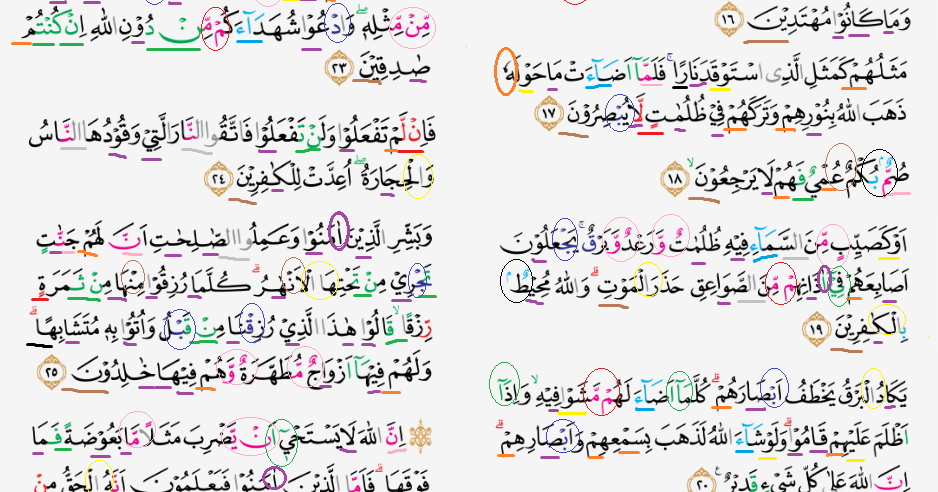 وَمَا كَانُوْا مُهْتَدِيْنَ ۝١٦
مَثَلُهُمْ كَمَثَلِ الَّذِى اسْتَوْقَدَ نَارًا ۚ فَلَمَّآ اَضَاۤءَتْ مَا حَوْلَهٗ
ذَهَبَ اللّٰهُ بِنُوْرِهِمْ وَتَرَكَهُمْ فِيْ ظُلُمٰتٍ لَّا يُبْصِرُوْنَ ۝١٧
صُمٌّ ۢ بُكْمٌ عُمْيٌ فَهُمْ لَا يَرْجِعُوْنَ ۙ ۝١٨
اَوْ كَصَيِّبٍ مِّنَ السَّمَاۤءِ فِيْهِ ظُلُمٰتٌ وَّرَعْدٌ وَّبَرْقٌ ۚ يَجْعَلُوْنَ
اَصَابِعَهُمْ فِيْٓ اٰذَانِهِمْ مِّنَ الصَّوَاعِقِ حَذَرَ الْمَوْتِ ۗ وَاللّٰهُ مُحِيْطٌ ۢ
بِالْكٰفِرِيْنَ ۝١٩
يَكَادُ الْبَرْقُ يَخْطَفُ اَبْصَارَهُمْ ۗ كُلَّمَآ اَضَاۤءَ لَهُمْ مَّشَوْا فِيْهِ ۙ وَاِذَآ
اَظْلَمَ عَلَيْهِمْ قَامُوْا ۗ وَلَوْ شَاۤءَ اللّٰهُ لَذَهَبَ بِسَمْعِهِمْ وَاَبْصَارِهِمْ ۗ
اِنَّ اللّٰهَ عَلٰى كُلِّ شَيْءٍ قَدِيْرٌ ۝٢٠
مِّنْ مِّثْلِهٖ ۖ وَادْعُوْا شُهَدَاۤءَكُمْ مِّنْ دُوْنِ اللّٰهِ اِنْ كُنْتُمْ
صٰدِقِيْنَ ۝٢٣
فَاِنْ لَّمْ تَفْعَلُوْا وَلَنْ تَفْعَلُوْا فَاتَّقُوا النَّارَ الَّتِيْ وَقُوْدُهَا النَّاسُ
وَالْحِجَارَةُ ۖ اُعِدَّتْ لِلْكٰفِرِيْنَ ۝٢٤
وَبَشِّرِ الَّذِيْنَ اٰمَنُوْا وَعَمِلُوا الصّٰلِحٰتِ اَنَّ لَهُمْ جَنّٰتٍ
تَجْرِيْ مِنْ تَحْتِهَا الْاَنْهٰرُ ۗ كُلَّمَا رُزِقُوْا مِنْهَا مِنْ ثَمَرَةٍ
رِّزْقًا ۙ قَالُوْا هٰذَا الَّذِيْ رُزِقْنَا مِنْ قَبْلُ وَاُتُوْا بِهٖ مُتَشَابِهًا ۗ
وَلَهُمْ فِيْهَآ اَزْوَاجٌ مُّطَهَّرَةٌ وَّهُمْ فِيْهَا خٰلِدُوْنَ ۝٢٥
۞ اِنَّ اللّٰهَ لَا يَسْتَحْيٖٓ اَنْ يَّضْرِبَ مَثَلًا مَّا بَعُوْضَةً فَمَا
فَوْقَهَا ۗ فَاَمَّا الَّذِيْنَ اٰمَنُوْا فَيَعْلَمُوْنَ اَنَّهُ الْحَقُّ مِنْ